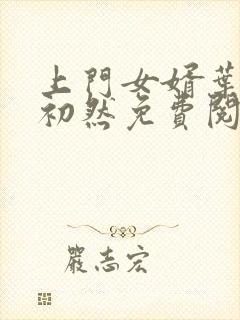 上門女婿葉
初然免費閱
嚴志宏